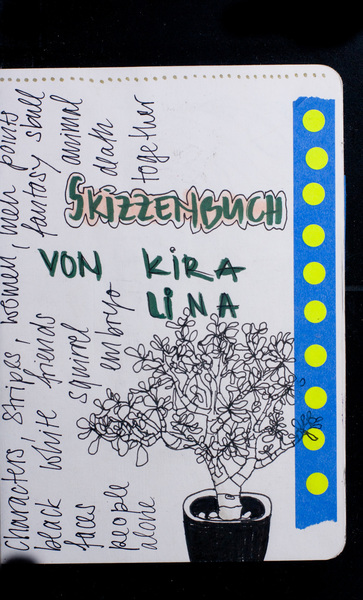 SKIZZENBUCH
VON KIRA
LINA
characters, stripes, women, men points
black white friends fantasy skull
faces squirrel animal
people embryo death
alone together